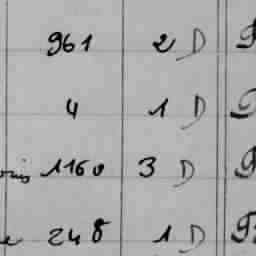 961 2 D
4 1 D
1160 3 D
248 1 D